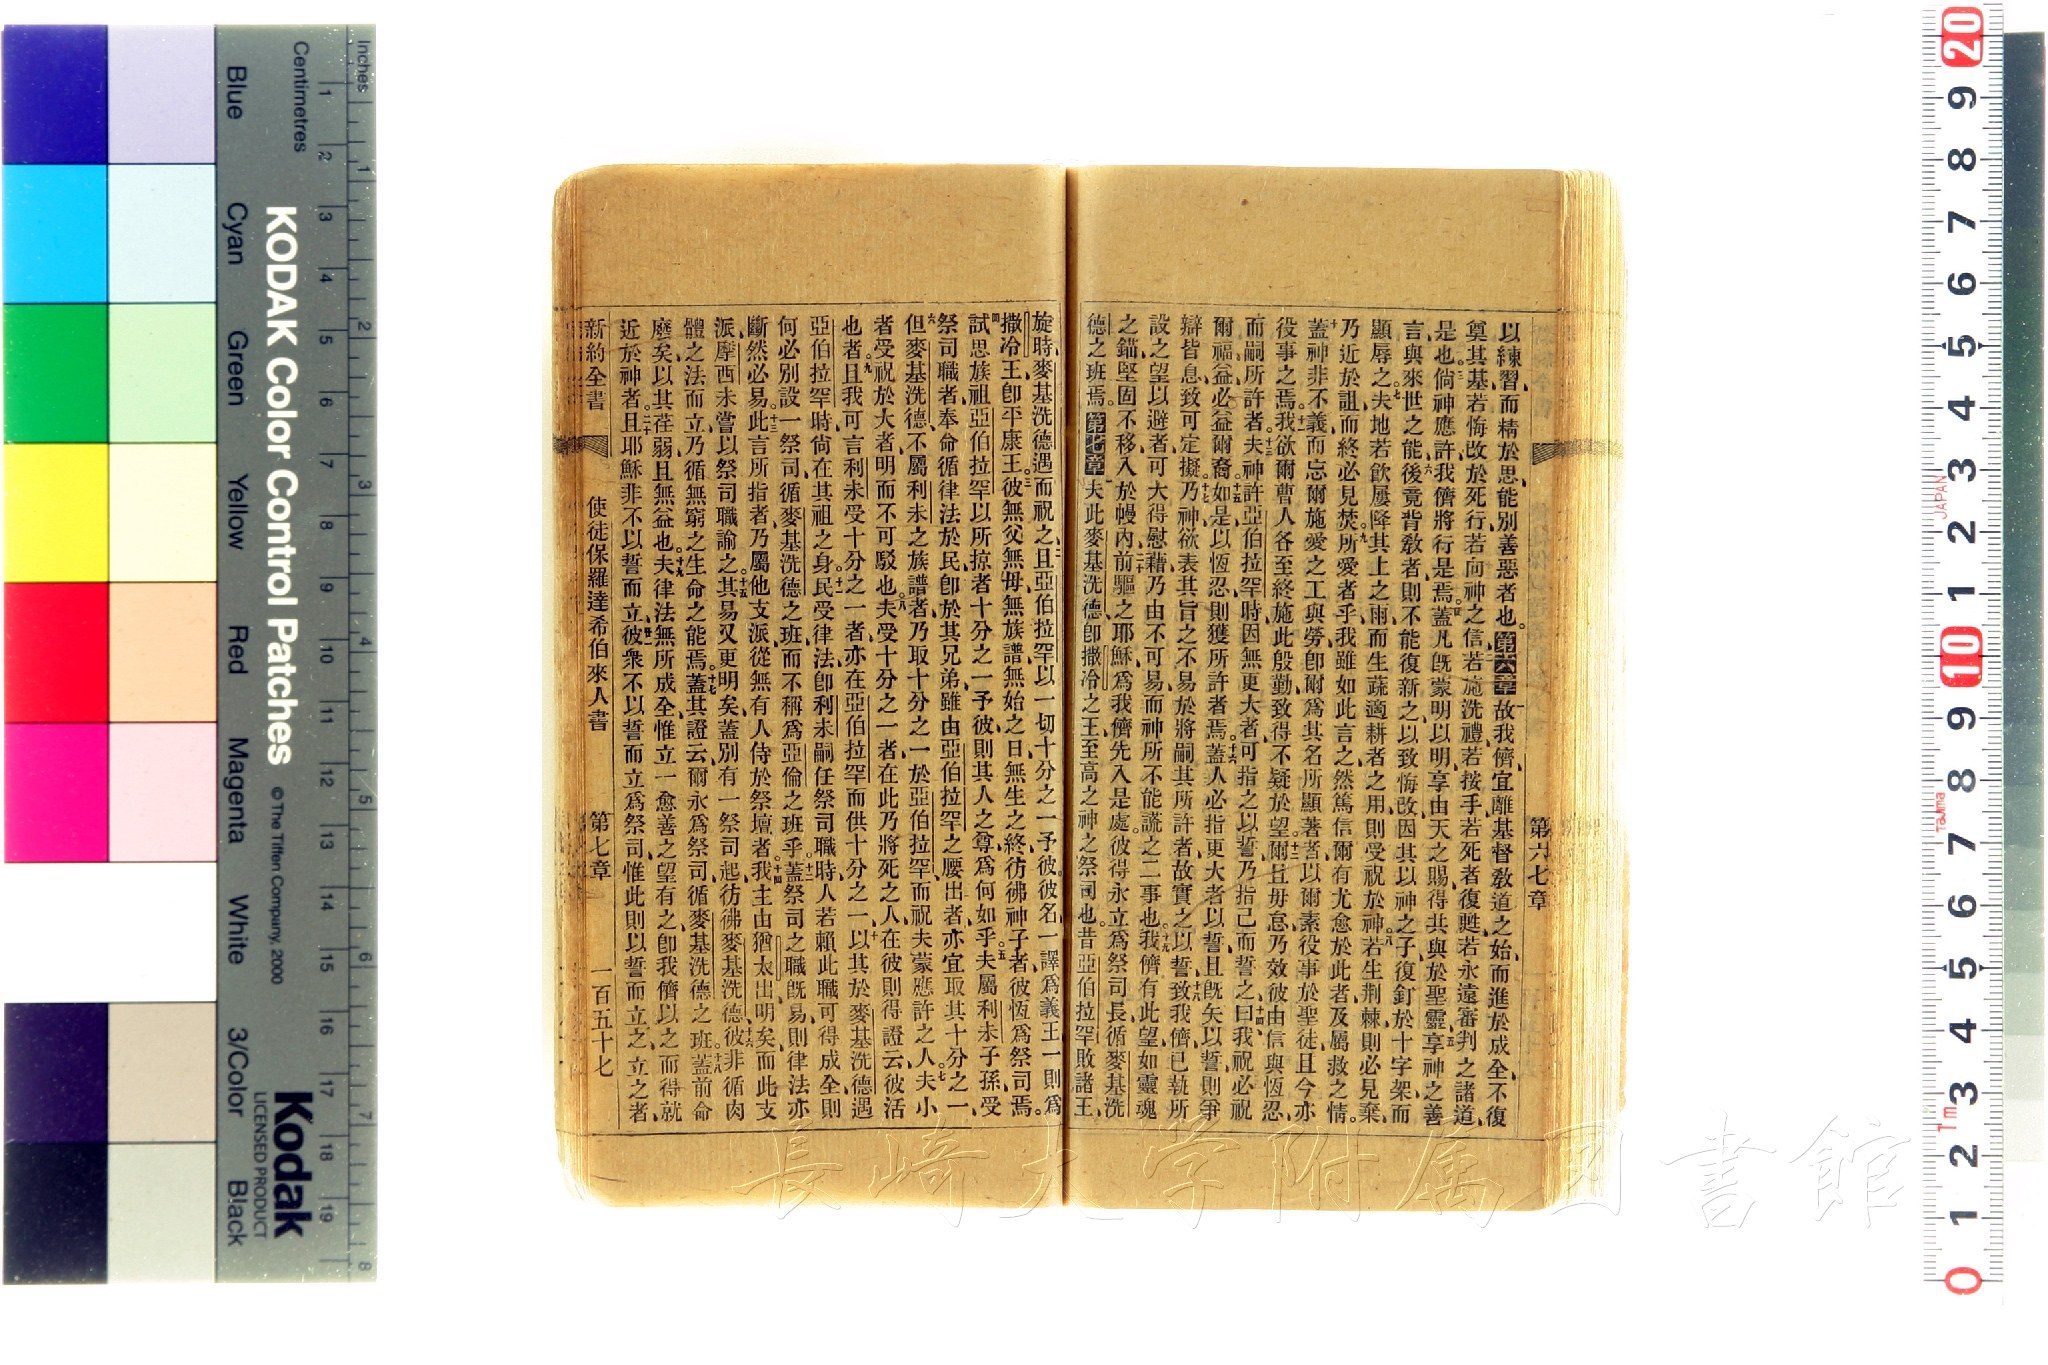 Inches
Centimetres
KODAK Color Control Patches
© The Tiffen Company, 2000
Kodak
LICENSED PRODUCT
Blue
Cyan
Green
Yellow
Red
Magenta
White
3/Color
Black
第六七章
以練習、而精於思、能別善惡者也。第六章故我儕宜離基督敎道之始、而進於成全、不復
奠其基、若悔改於死行、若向神之信、若施洗禮、若按手、若死者復甦、若永遠審判之諸道、
是也、倘神應許、我儕將行是焉、蓋凡旣蒙明以明、享由天之賜、得共與於聖靈、享神之善
言、與來世之能、後竟背敎者、則不能復新之、以致悔改、因其以神之子復釘於十字架、而
顯辱之、夫地若飮屢降其上之雨、而生蔬適耕者之用、則受祝於神、若生荆棘、則必見棄、
乃近於詛、而終必見焚、所愛者乎、我雖如此言之、然篤信爾有尤愈於此者、及屬救之情。
蓋神非不義、而忘爾施愛之工與勞、卽爾爲其名所顯著者、以爾素役事於聖徒、且今亦
役事之焉、我欲爾曹人各至終施此殷勤、致得不疑於望、爾且毋怠、乃效彼由信與恆忍、
而嗣所許者、夫神許亞伯拉罕時、因無更大者可指之以誓、乃指己而誓之曰、我祝必祝
爾、福益必益爾裔、如是以恆忍、則獲所許者焉、蓋人必指更大者以誓、且旣矢以誓、則爭
辯皆息、致可定擬、乃神欲表其旨之不易於將嗣其所許者、故實之以誓、致我儕已執所
設之望以避者、可大得慰藉、乃由不可易、而神所不能謊之二事也、我儕有此望、如靈魂
之錨、堅固不移、入於幔內、前驅之耶穌、爲我儕先入是處、彼得永立爲祭司長、循麥基洗
德之班焉。第七章夫此麥基洗德、卽撒冷之王、至高之神之祭司也。昔亞伯拉罕敗諸王、
旋時、麥基洗德遇而祝之、且亞伯拉罕以一切十分之一予彼、彼名一譯爲義王、一則爲
撒冷王、卽平康王、彼無父、無母、無族譜、無始之日、無生之終、彷彿神子者、彼恆爲祭司焉。
試思族祖亞伯拉罕、以所掠者十分之一予彼、則其人之尊爲何如乎、夫屬利未子孫、受
祭司職者、奉命循律法於民、卽於其兄弟、雖由亞伯拉罕之腰出者、亦宜取其十分之一、
但麥基洗德、不屬利未之族譜者、乃取十分之一於亞伯拉罕、而祝夫蒙應許之人、夫小
者受祝於大者、明而不可駁也、夫受十分之一者、在此乃將死之人、在彼則得證云、彼活
也者、且我可言利未受十分之一者、亦在亞伯拉罕而供十分之一、以其於麥基洗德遇
亞伯拉罕時、尙在其祖之身、民受律法、卽利未嗣任祭司職時、人若賴此職可得成全、則
何必別設一祭司、循麥基洗德之班、而不稱爲亞倫之班乎、蓋祭司之職旣易、則律法亦
斷然必易、此言所指者、乃屬他支派、從無有人侍於祭壇者、我主由猶太出明矣、而此支
派、摩西未嘗以祭司職諭之、其易又更明矣、蓋別有一祭司起、彷彿麥基洗德、彼非循肉
體之法而立、乃循無窮之生命之能焉、蓋其證云、爾永爲祭司、循麥基洗德之班、蓋前命
廢矣、以其荏弱且無益也、夫律法無所成全、惟立一愈善之望有之、卽我儕以之而得就
近於神者、且耶穌非不以誓而立、彼衆不以誓而立爲祭司、惟此則以誓而立之、立之者
新約全書
使徒保羅達希伯來人書
第七章
一百五十七
長崎大学附属図書館
JAPAN
Tajima